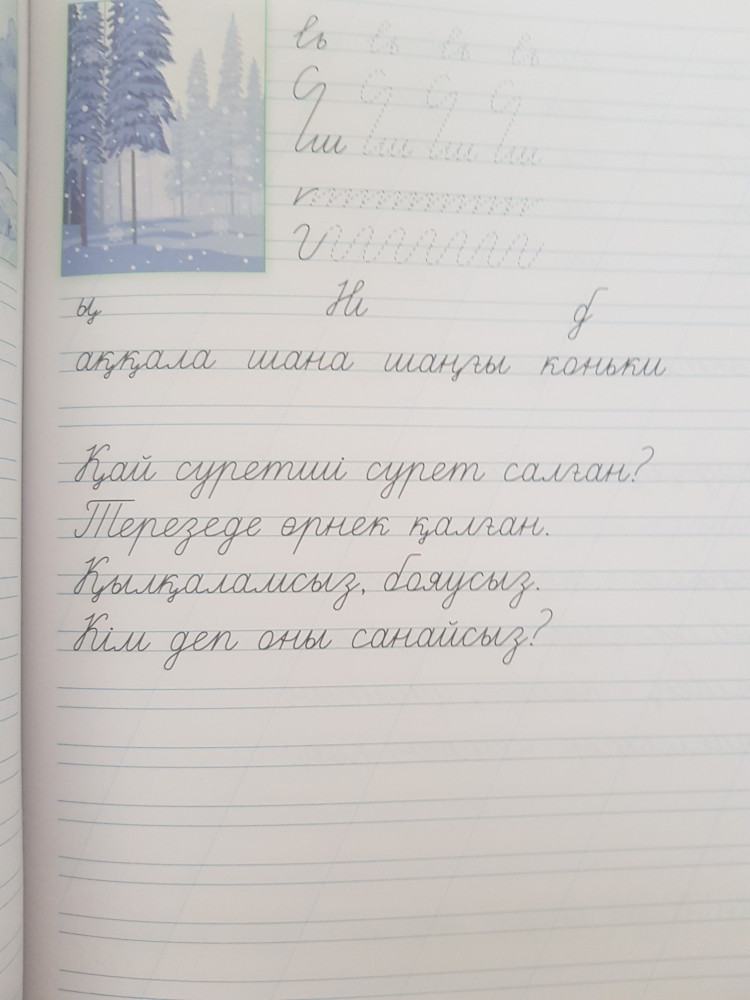 ың Нı б
аққала шана шаңғы коньки
Қай суретші сурет салған?
Терезеде өрнек қалған.
Қылқаламсыз, бояусыз.
Кім деп оны санайсыз?